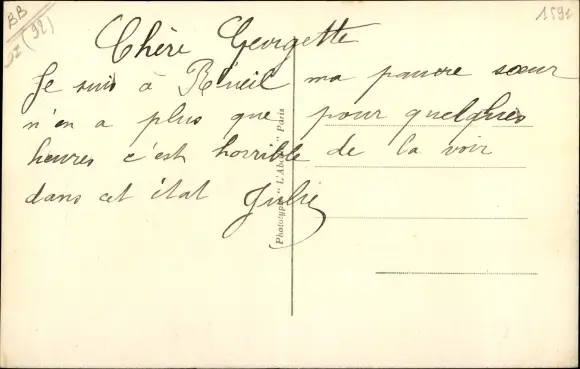 BB
(92)
1591
Chère Georgette
Je suis à Rueil ma pauvre sœur
n'en a plus que pour quelques
heures c'est horrible de la voir
dans cet état Julie
Phototypie "L'Abeille" Paris